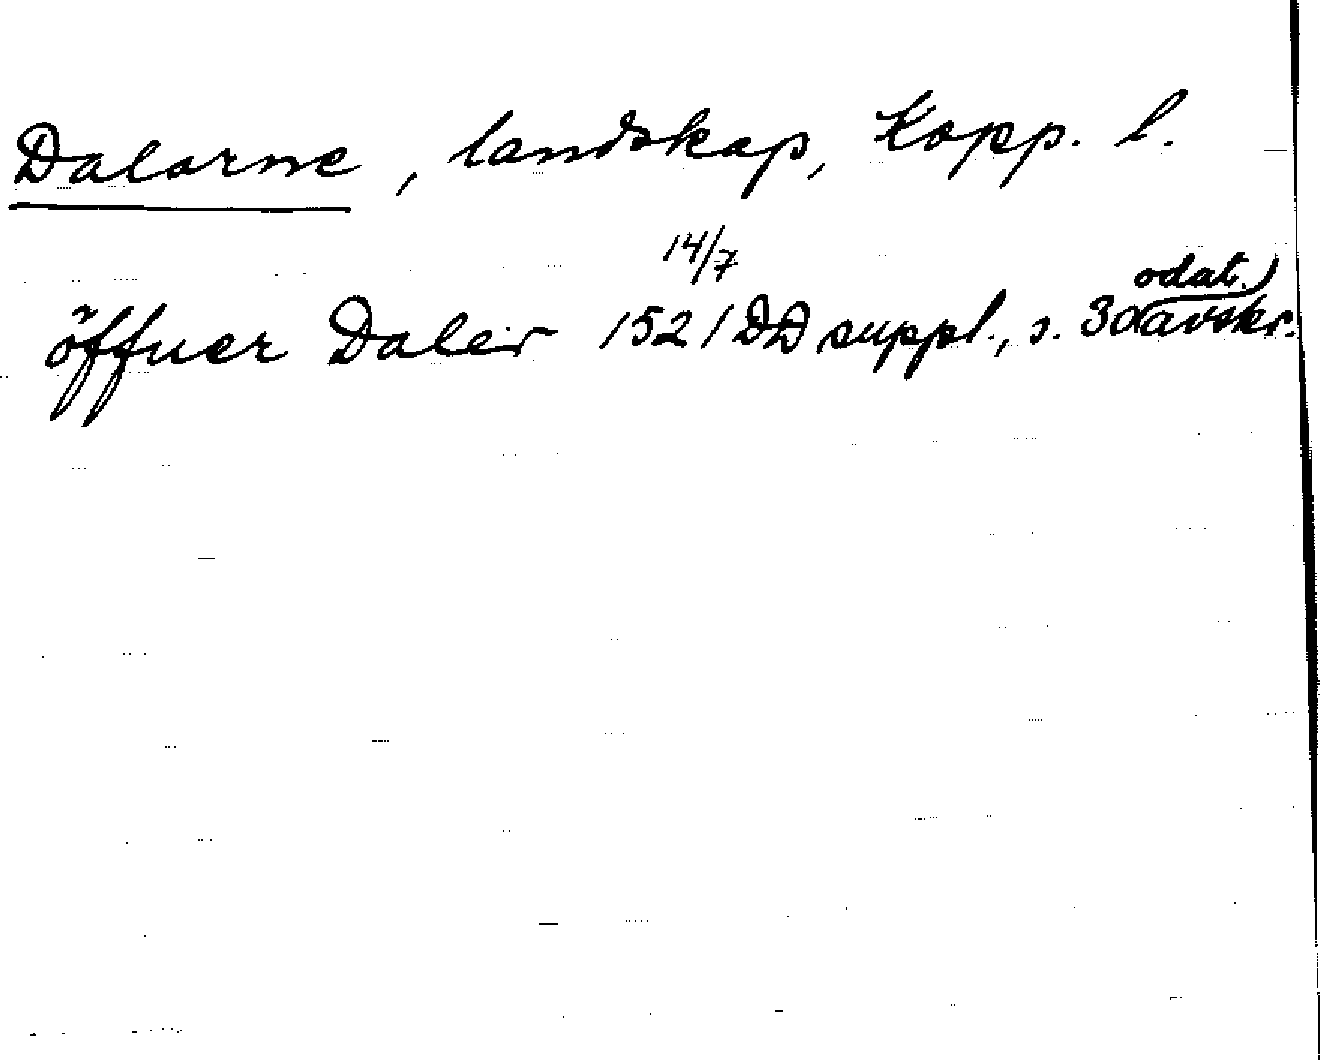 Dalarne, landskap, Kopp. l.
14/7
odat.
öffuer Daler 1521 DD suppl., s. 30 avskr.